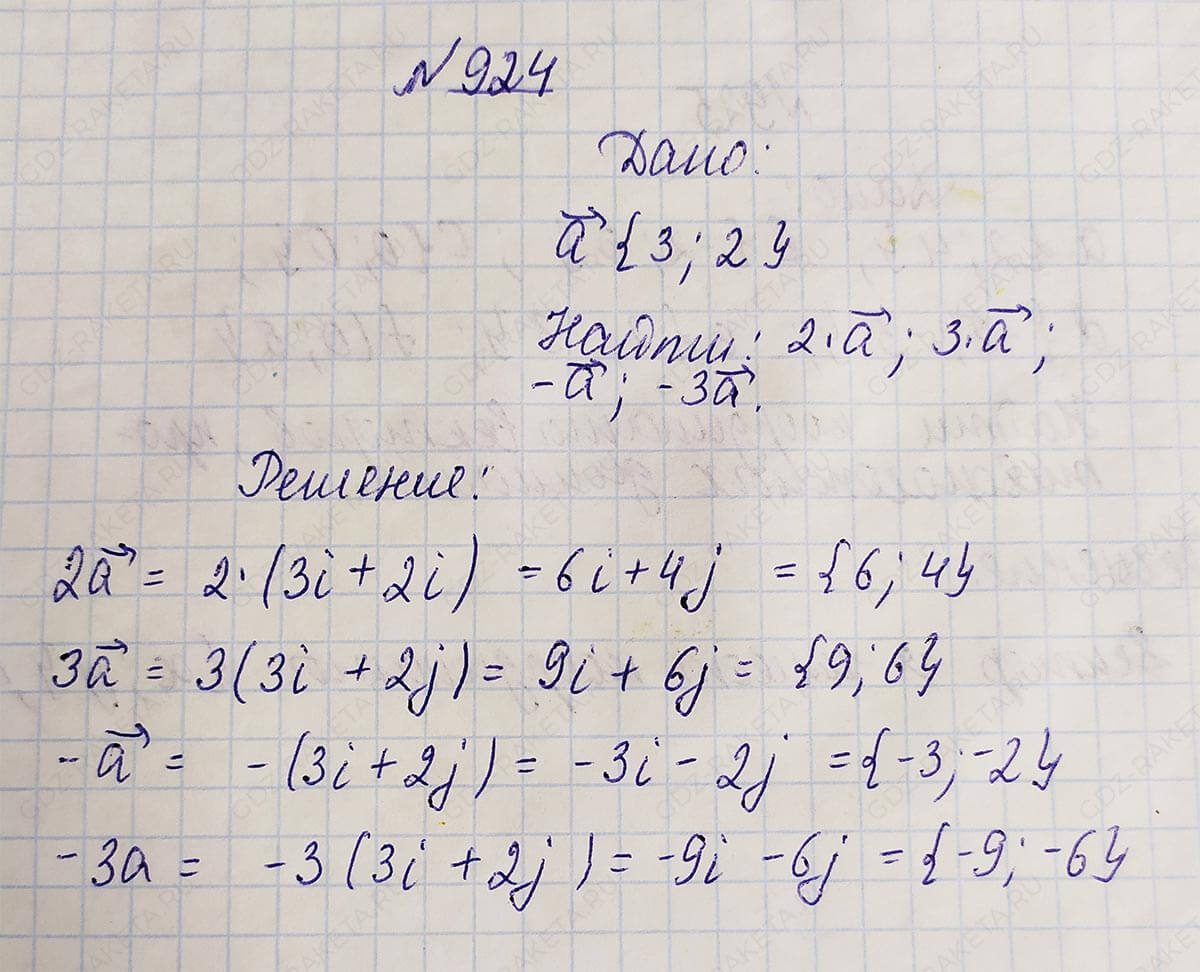 №924
Дано:
a⃗ {3; 2}
Найти: 2·a⃗; 3·a⃗;
-a⃗; -3a⃗.
Решение:
2a⃗ = 2·(3i + 2i) = 6i + 4j = {6; 4}
3a⃗ = 3(3i + 2j) = 9i + 6j = {9; 6}
-a⃗ = -(3i + 2j) = -3i - 2j = {-3; -2}
-3a = -3(3i + 2j) = -9i - 6j = {-9; -6}
GDZ-RAKETA.RU